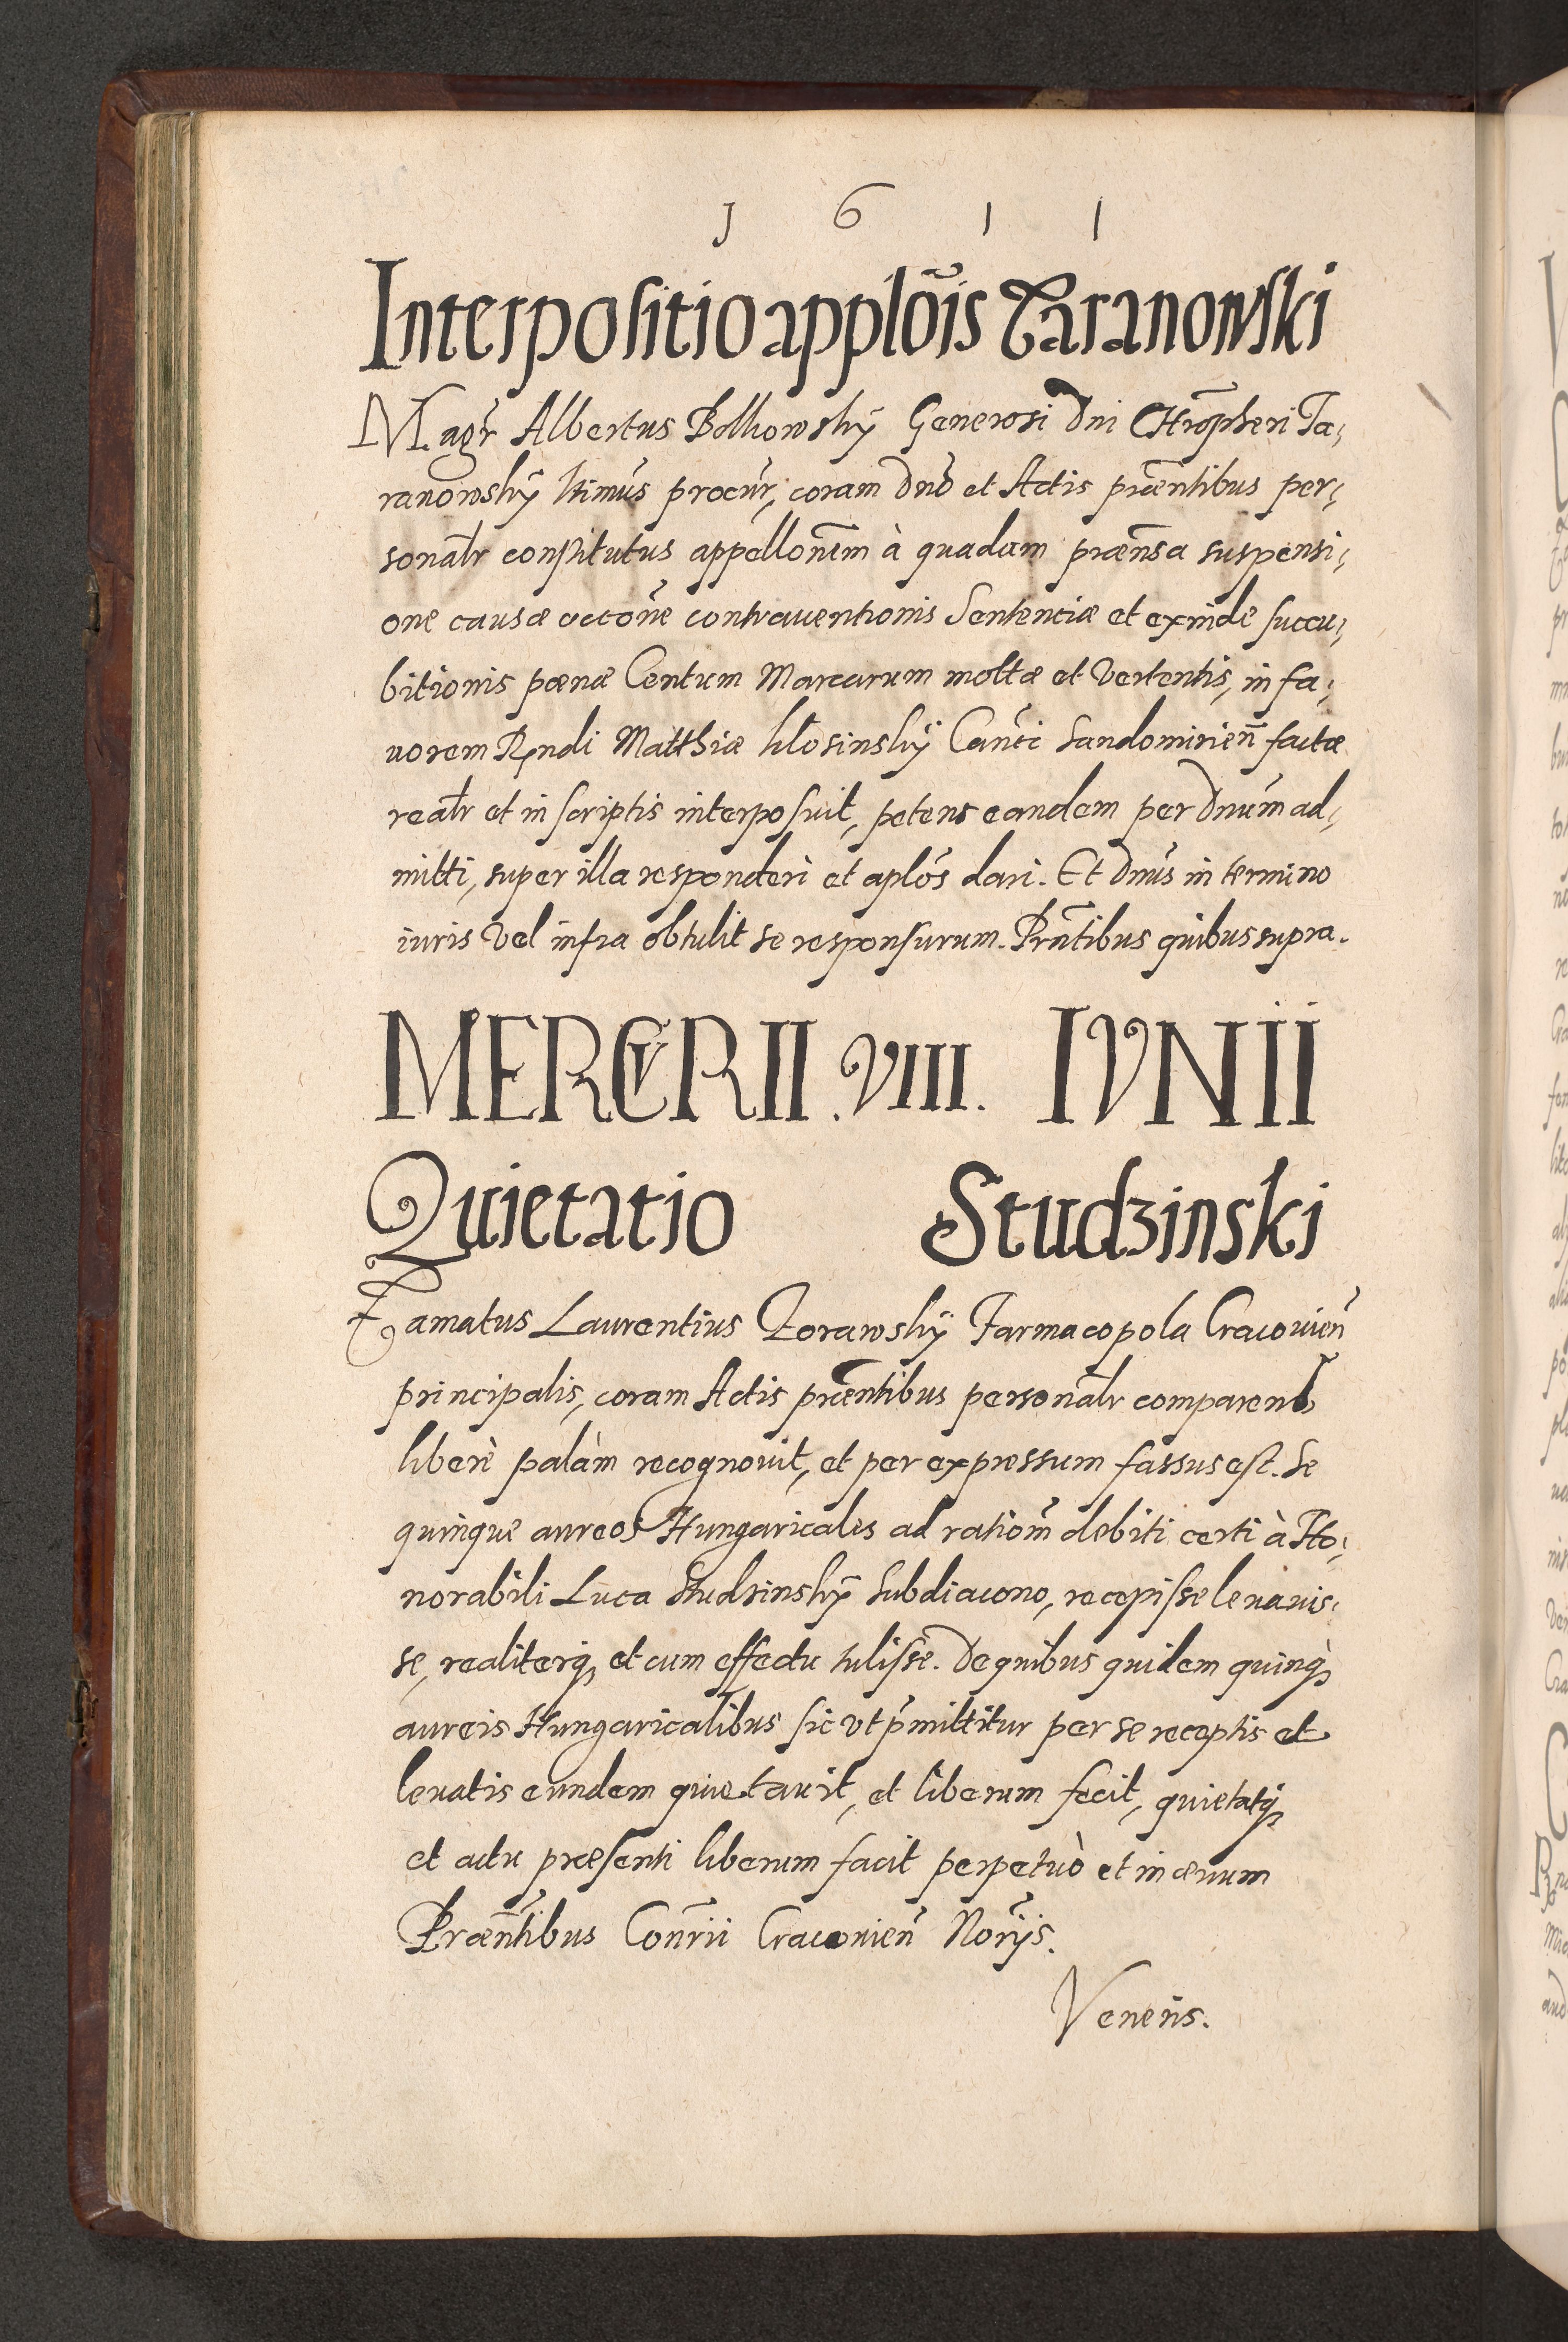 1 6 1 1
Interpositio applõis Taranowski
Magr̃ Albertus Bolkowskÿ Generosi Dñi Chrõpheri Ta¸
ranowskÿ ltimũs procũr, coram dnõ et Actis præñtibus per¸
sonalr̃ constitutus appellonẽm à quadam præñsa suspensi¸
one causæ occõne contrauentionis Sententiæ et exinde succu¸
bitionis pœnæ Centum Marcarum mottæ et Vertentis, in fa¸
uorem Rndi Matthiæ Klosinskÿ Canci Sandomirień factæ
realr̃ et in scriptis interposuit, petens eandem per Dnũm ad¸
mitti, super illa responderi et aplõs dari. Et Dnũs in termino
iuris Vel infra obtulit se responsurum. Prñtibus quibus supra.
MERCVRII .VIIII. IVNII
Quietatio Studzinski
Famatus Laurentius Zorawskÿ Farmacopola Cracouień
principalis, coram Actis præñtibus personalr̃ comparens
liberè palàm recognouit, et per expressum fassus est. Se
quinque aureos Hungaricales ad rationm̃ debiti certi à Ho¸
norabili Luca Studzinskÿ Subdiacono, recepisse leuauis¸
se, realiterq, et cum effectu tulisse. De quibus quidem quinq,
aureis Hungaricalibus sic vt p̃mittitur per se receptis et
leuatis eundem quietauit, et liberum fecit, quietatq,
et actu præsenti liberum facit perpetuò et in æuum
Præñtibus Conrĩi Cracouień Norĩjs.
Veneris.